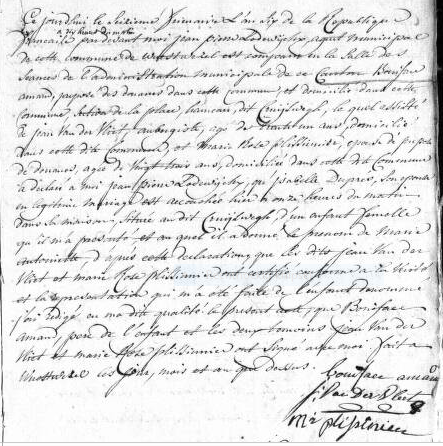 Ce jourd'hui le seizième frimaire l'an six de la République
à dix heures du matin
française par devant moi jean pierre Lodewijckx, agent municipal
de cette commune de Westwezel est comparu en la salle des
séances de l'administration municipale de ce Canton Boniface
amand, préposé des douanes dans cette commune, et domicilié dans cette
commune, section de la place, français, dit Cruijswegh, lequel assisté
de jean Van der Vliet aubergiste, agé de trente un ans, domicilié
dans cette dite commune, et marie Rose plissonnier, épouse de préposé
de douanes, agée de vingt trois ans, domiciliée dans cette dite commune
a déclaré à moi jean pierre Lodewijckx, qu'isabelle Dupres, son épouse
en légitime mariage est accouchée hier à onze heures du matin
dans sa maison, située au dit Cruijswegh, d'un enfant femelle
qu'il m'a présenté et au quel il a donné le prenom de Marie
antoinette d'après cette déclaration, que les dits jean Van der
Vliet et marie Rose plissonnier ont certifié conforme à la vérité
et la représentation qui m'a été faite de l'enfant dénommé
j'ai rédigé en ma dite qualité le présent acte, que Boniface
Amand, père de l'enfant et les deux temoins jean Van der
Vliet et marie Rose plissonnier ont signé avec moi. fait à
Westwezel les jour, mois et an que dessus.
boniface amand
j: Van der Vliet
Mr